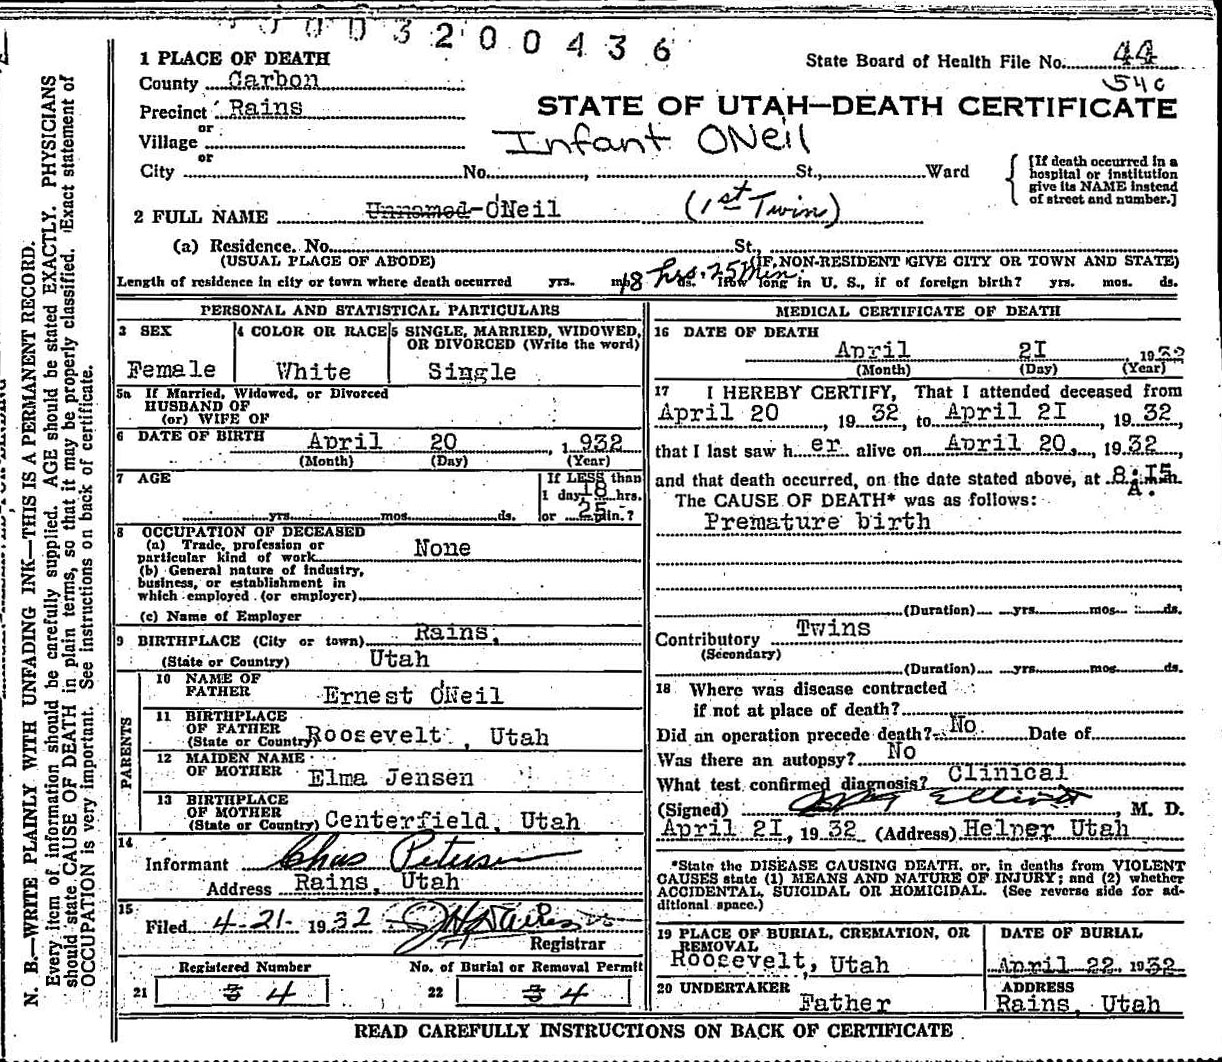 0003200436
1 PLACE OF DEATH
State Board of Health File No. 44
County Carbon
54c
Precinct Rains
STATE OF UTAH—DEATH CERTIFICATE
or
Village
Infant ONeil
or
City No. , St., Ward
[If death occurred in a hospital or institution give its NAME instead of street and number.]
2 FULL NAME Unnamed-ONeil (1st Twin)
(a) Residence. No. St.,
(USUAL PLACE OF ABODE) (IF NON-RESIDENT GIVE CITY OR TOWN AND STATE)
Length of residence in city or town where death occurred yrs. mos. 18 hrs. 25 Min. ds. How long in U. S., if of foreign birth? yrs. mos. ds.
PERSONAL AND STATISTICAL PARTICULARS
3 SEX
Female
4 COLOR OR RACE
White
5 SINGLE, MARRIED, WIDOWED, OR DIVORCED (Write the word)
Single
5a If Married, Widowed, or Divorced
HUSBAND OF
(or) WIFE OF
6 DATE OF BIRTH April 20 , 1932
(Month) (Day) (Year)
7 AGE
yrs. mos. ds.
If LESS than
1 day 18 hrs.
or 25 min.?
8 OCCUPATION OF DECEASED
(a) Trade, profession or
particular kind of work None
(b) General nature of industry,
business, or establishment in
which employed (or employer)
(c) Name of Employer
9 BIRTHPLACE (City or town) Rains,
(State or Country) Utah
PARENTS
10 NAME OF
FATHER Ernest ONeil
11 BIRTHPLACE
OF FATHER
(State or Country) Roosevelt, Utah
12 MAIDEN NAME
OF MOTHER Elma Jensen
13 BIRTHPLACE
OF MOTHER
(State or Country) Centerfield, Utah
14
Informant Chas Peterson
Address Rains, Utah
15
Filed 4-21- 1932
Registrar
Registered Number
21 3 4
No. of Burial or Removal Permit
22 3 4
MEDICAL CERTIFICATE OF DEATH
16 DATE OF DEATH
April 2I , 1932
(Month) (Day) (Year)
17 I HEREBY CERTIFY, That I attended deceased from
April 20 , 19 32 to April 2I , 19 32,
that I last saw h er alive on April 20, , 19 32,
and that death occurred, on the date stated above, at 8:I5 m.
A.
The CAUSE OF DEATH* was as follows:
Premature birth
(Duration) yrs. mos. ds.
Contributory Twins
(Secondary)
(Duration) yrs. mos. ds.
18 Where was disease contracted
if not at place of death?
Did an operation precede death? No Date of
Was there an autopsy? No
What test confirmed diagnosis? Clinical
(Signed) Elliott , M. D.
April 2I, 19 32 (Address) Helper Utah
*State the DISEASE CAUSING DEATH, or, in deaths from VIOLENT
CAUSES state (1) MEANS AND NATURE OF INJURY; and (2) whether
ACCIDENTAL, SUICIDAL OR HOMICIDAL. (See reverse side for ad-
ditional space.)
19 PLACE OF BURIAL, CREMATION, OR
REMOVAL
Roosevelt, Utah
DATE OF BURIAL
April 22 1932
20 UNDERTAKER
Father
ADDRESS
Rains, Utah
READ CAREFULLY INSTRUCTIONS ON BACK OF CERTIFICATE
N. B.—WRITE PLAINLY WITH UNFADING INK—THIS IS A PERMANENT RECORD.
Every item of information should be carefully supplied. AGE should be stated EXACTLY. PHYSICIANS
should state CAUSE OF DEATH in plain terms, so that it may be properly classified. Exact statement of
OCCUPATION is very important. See instructions on back of certificate.